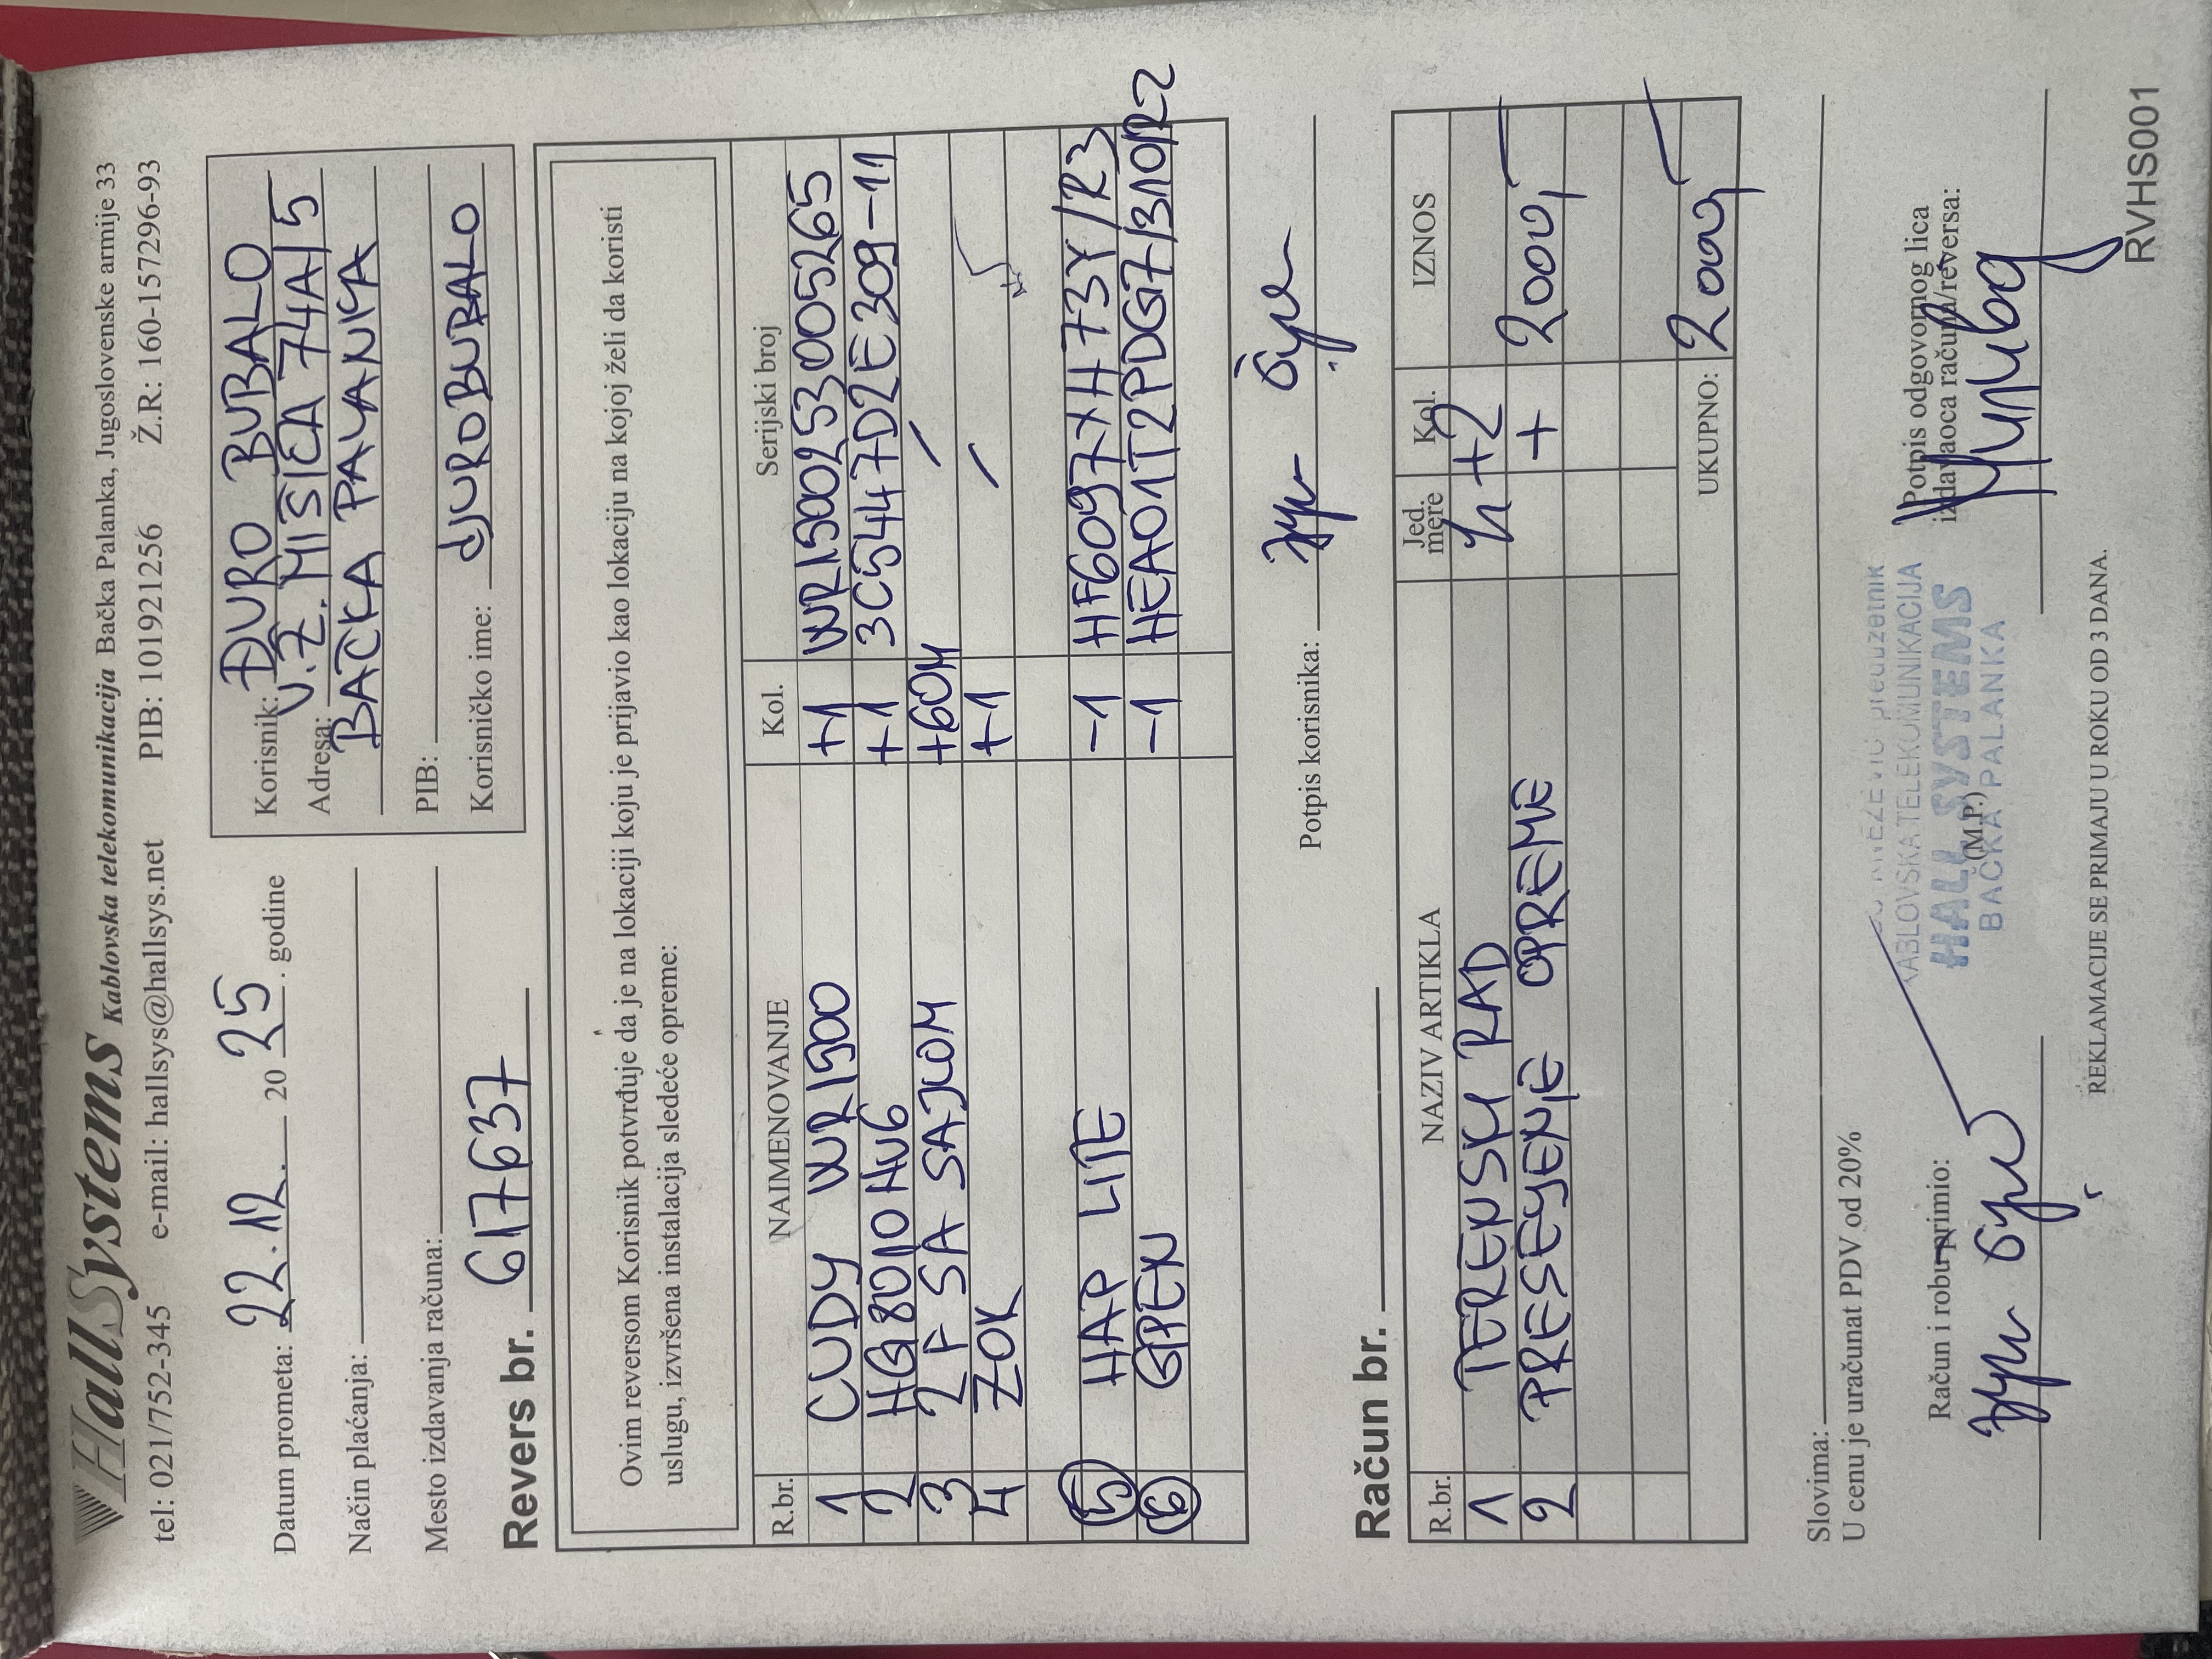 HallSystems Kablovska telekomunikacija Bačka Palanka, Jugoslovenske armije 33
tel: 021/752-345 e-mail: hallsys@hallsys.net PIB: 101921256 Ž.R: 160-157296-93
Datum prometa: 22.12. 2025. godine
Način plaćanja:
Mesto izdavanja računa:
Korisnik: ĐURO BUBALO
Adresa: V.Ž. MIŠIĆA 74A/5
BAČKA PALANKA
PIB:
Korisničko ime: djUROBUBALO
Revers br. 617637
Ovim reversom Korisnik potvrđuje da je na lokaciji koju je prijavio kao lokaciju na kojoj želi da koristi
uslugu, izvršena instalacija sledeće opreme:
R.br. NAIMENOVANJE Kol. Serijski broj
1 CUDY WR1500 +1 WR15002530005265
2 HG8010HV6 +1 3C5447D2E309-11
3 2F SA SAJLOM +60M /
4 ZOK +1 /
5 HAP LITE -1 HF6097XH73Y/R3
6 GPEN -1 HEA01T2PDG7/310/R2
Potpis korisnika:
Račun br.
R.br. NAZIV ARTIKLA Jed. mere Kol. IZNOS
1 TERENSKI RAD h +2
2 PRESELJENJE OPREME + 2000,
UKUPNO: 2000,
Slovima:
U cenu je uračunat PDV od 20%
Račun i robu primio:
preduzetnik
KABLOVSKA TELEKOMUNIKACIJA
HALL SYSTEMS
BAČKA PALANKA
(M.P.)
Potpis odgovornog lica
izdavaoca računa/reversa:
REKLAMACIJE SE PRIMAJU U ROKU OD 3 DANA.
RVHS001